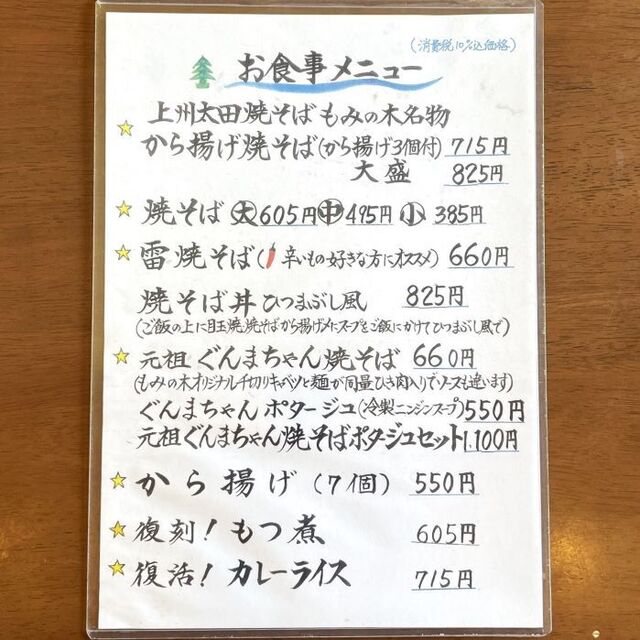 (消費税10%込価格)
お食事メニュー
上州太田焼そばもみの木名物
から揚げ焼そば(から揚げ3個付) 715円
大盛 825円
焼そば 大605円 中495円 小385円
雷焼そば(辛いもの好きな方にオススメ) 660円
焼そば丼ひつまぶし風 825円
(ご飯の上に目玉焼、焼そばから揚げ〆にスープをご飯にかけてひつまぶし風で)
元祖ぐんまちゃん焼そば 660円
(もみの木オリジナルチ切りキャベツと麺が同量ひき肉入りでソースも違います)
ぐんまちゃんポタージュ(冷製ニンジンスープ)550円
元祖ぐんまちゃん焼そばポタジュセット1,100円
から揚げ(7個) 550円
復刻!もつ煮 605円
復活!カレーライス 715円